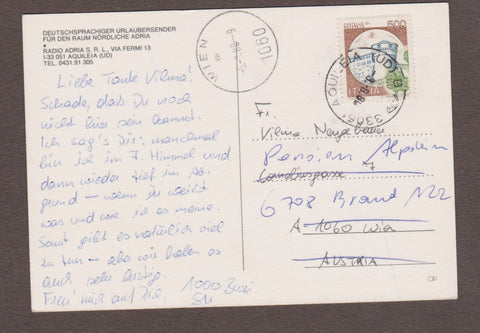 DEUTSCHSPRACHIGER URLAUBERSENDER
FÜR DEN RAUM NÖRDLICHE ADRIA
•
RADIO ADRIA S. R. L., VIA FERMI 13
I-33 051 AQUILEIA (UD)
TEL. 0431.91 305
Liebe Tante Vilma!
Schade, daß Du noch
nicht hier sein kannst.
Ich sag's Dir: manchmal
bin ich im 7. Himmel und
dann wieder tief im Ab-
grund – wenn Du weißt
was und wie ich es meine.
Sonst gibt es natürlich viel
zu tun – aber wir haben es
auch sehr lustig.
Freu' mich auf Dich. 1000 Bussi
WIEN
1060
500
ITALIA
AQUILEIA (UD)
Fr.
Vilma
Pension Alpstern
6708 Brand
A-1060 Wien
AUSTRIA